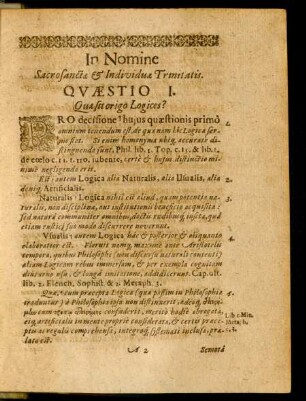 In Nomine
Sacrosanctæ & Individuæ Trinitatis.
QVÆSTIO I.
Quæ sit origo Logices?
PRO decisione hujus quæstionis primò
omnium tenendum est, de qua nam hîc Logica ser-
mo siet. Si enim homonyma ubiq; accurate di-
stinguenda sunt, Phil. lib. 5. Top. c. 11. & lib. 2.
de cœlo c. 11. t. 110. jubente, certè & hujus distinctio mi-
nimè negligenda erit.
Est autem Logica alia Naturalis, alia Usualis, alia
deniq; Artificialis.
Naturalis Logica nihil est aliud, quam potentia natu-
ralis, non disciplinæ, aut institutionis beneficio acquisita:
Sed natura communiter omnibus, doctis rudibusq; insita, quâ
etiam rustici suo modo disserere noverunt.
Vsualis autem Logica hâc & posterior & aliquanto
elaboratior est. Floruit nomq; maximè ante Aristotelis
tempora, quibus Philosophi (cum disserendi naturali contenti)
etiam Logicam rebus immersam, & per exempla cognitam
diuturno usu, & longâ imitatione, addidicerunt. Cap. ult.
lib. 2. Elench. Sophist. & 2. Metaph. 3.
Quia verò præcepta Logica (quæ passim in Philosophiâ
traduntur) à Philosophia ipsa non distinxerit, adeoq;
plus cum
considerârit, meritò hactè
eiq; artificialis in mente propriè considerata, & certis præcep-
tis ac regulis comprehensa, integraq; sistemati inclusa, præ-
lata est.
2.
3.
4.
Lib. 1. Min.
Meta. t.
5.
A 2
Remotâ